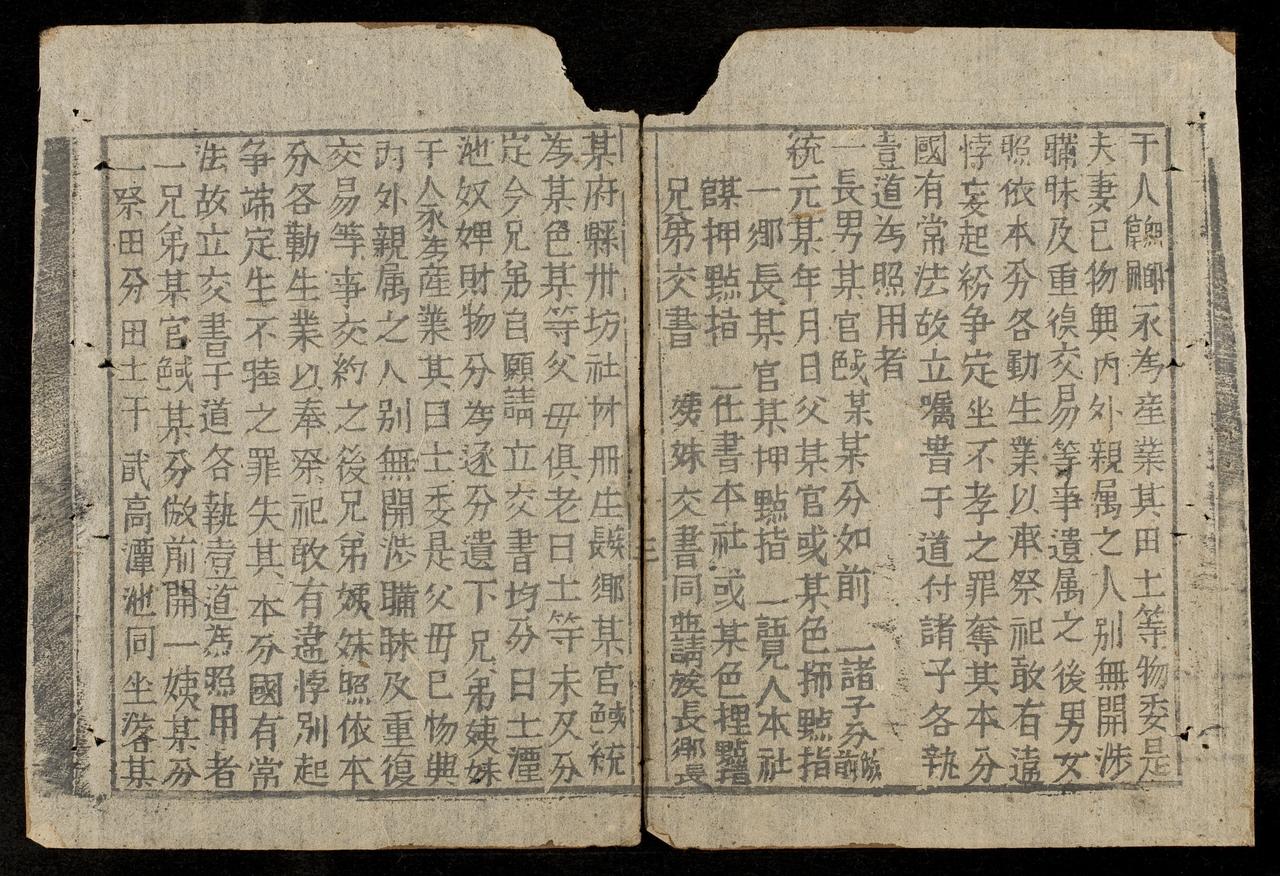 干人永為産業其田土等物委是
夫妻已物與內外親属之人別無開渉
瞞昧及重復交易等事遺属之後男女
照依本分各勤生業以承祭祀敢有違
悖妄起紛争定坐不孝之罪奪其本分
國有常法故立嘱書于道付諸子各執
壹道為照用者
一長男某官或某某分如前 一諸子分
統元某年月日父某官或某色押點指
一鄉長某官某押點指 一覽人本社
某押點指 一仕書本社或某色押點指
兄弟交書 姨妹交書同並請族長鄉長
某府縣卅坊社村冊生族鄉某官或統
為某色某等父母俱老田土等未及分
定今兄弟自願請立交書均分田土潭
池奴婢財物分為逐分遺下兄弟姨妹
干人永為産業其田土委是父母已物與
內外親属之人別無開渉瞞昧及重復
交易等事交約之後兄弟姨妹照依本
分各勤生業以奉祭祀敢有違悖別起
争端定坐不睦之罪失其本分國有常
法故立交書于道各執壹道為照用者
一兄弟某官或某分倣前開一姨某分
一祭田分田土干貳高潭池同坐落某